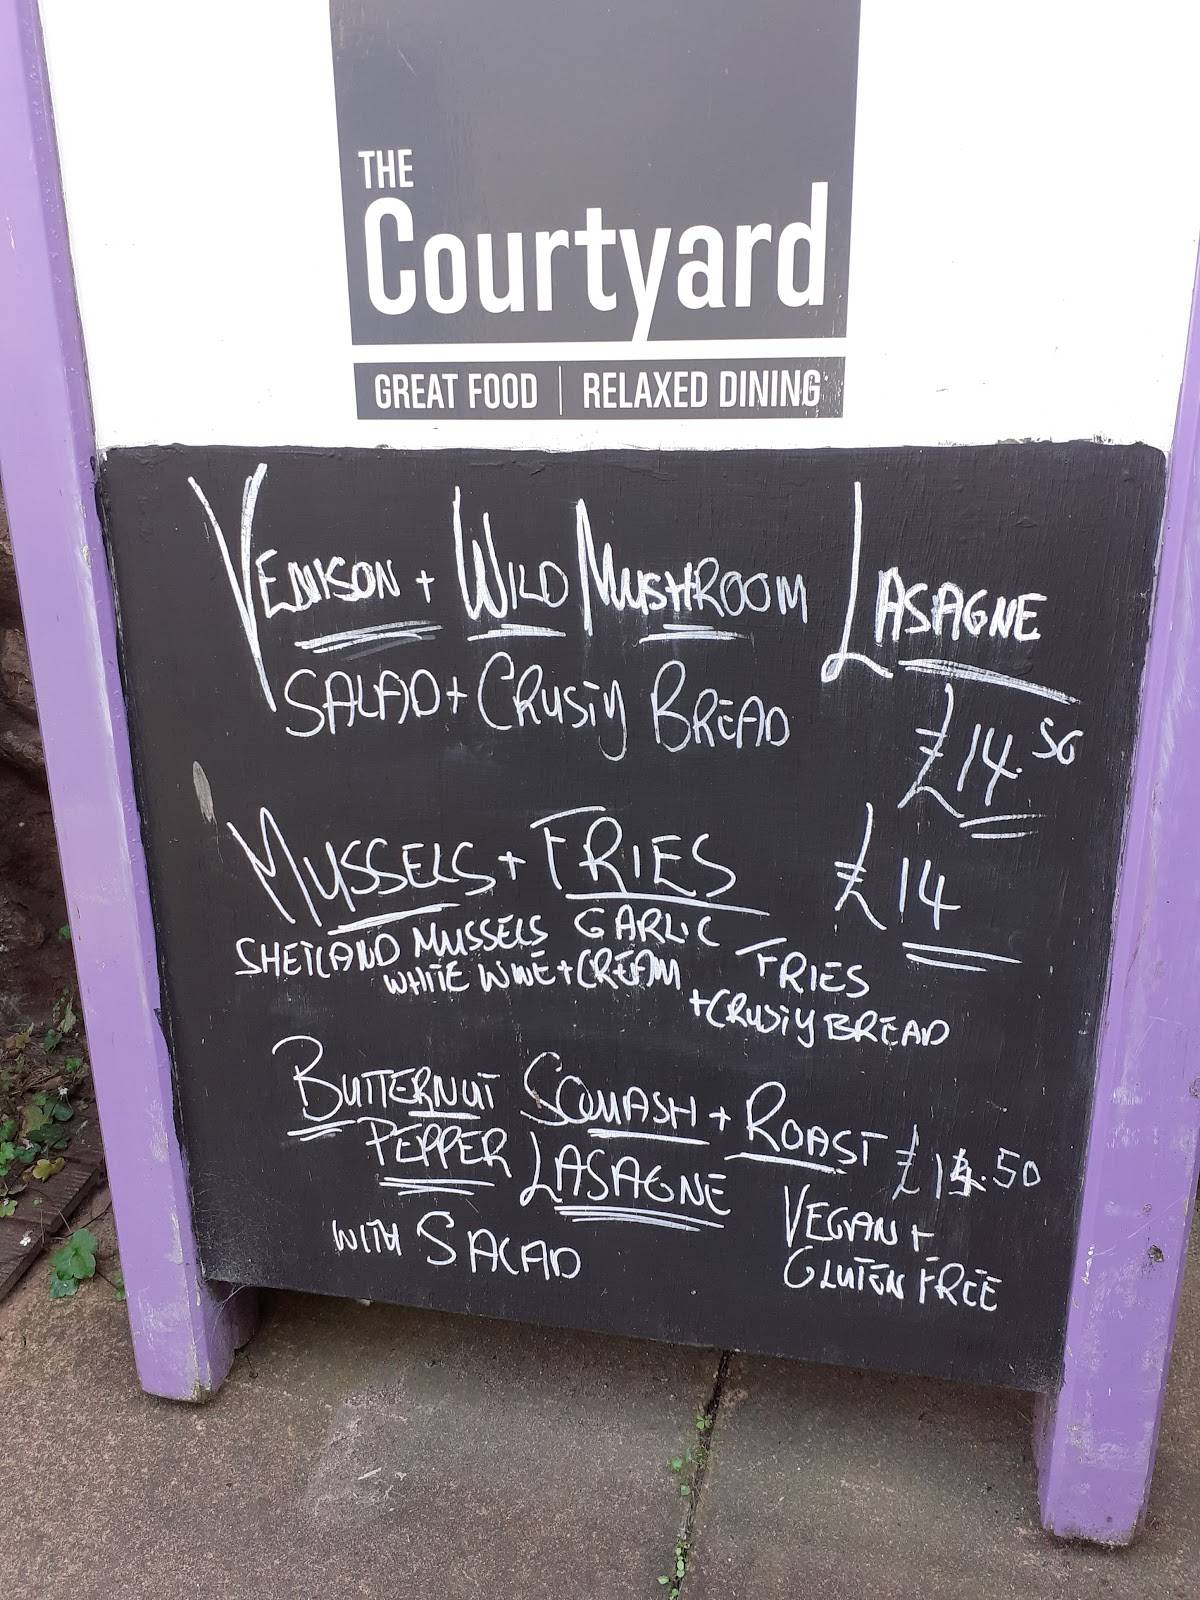 THE
Courtyard
GREAT FOOD | RELAXED DINING
VENISON + WILD MUSHROOM LASAGNE
SALAD + CRUSTY BREAD £14.50
MUSSELS + FRIES £14
SHETLAND MUSSELS GARLIC
WHITE WINE + CREAM FRIES
+ CRUSTY BREAD
BUTTERNUT SQUASH + ROAST
PEPPER LASAGNE
WITH SALAD VEGAN +
GLUTEN FREE